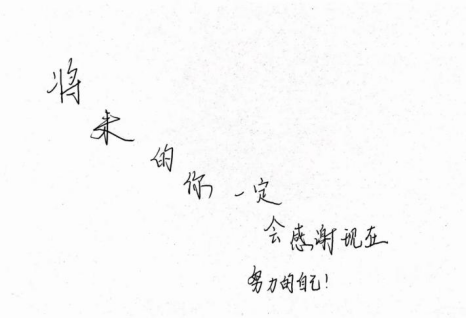 将来的你一定
会感谢现在
努力的自己!